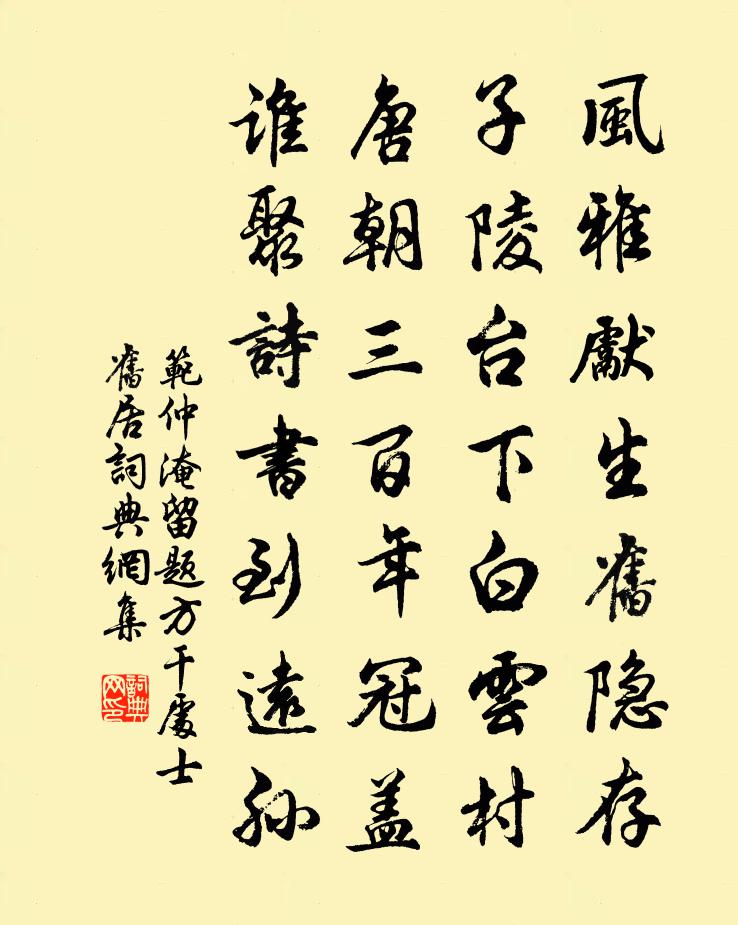 風雅獻生舊隐存
子陵台下白雲村
唐朝三百年冠盖
誰聚詩書到遠孫
範仲淹留题方干處士
舊居詞典網集
詞典
网印